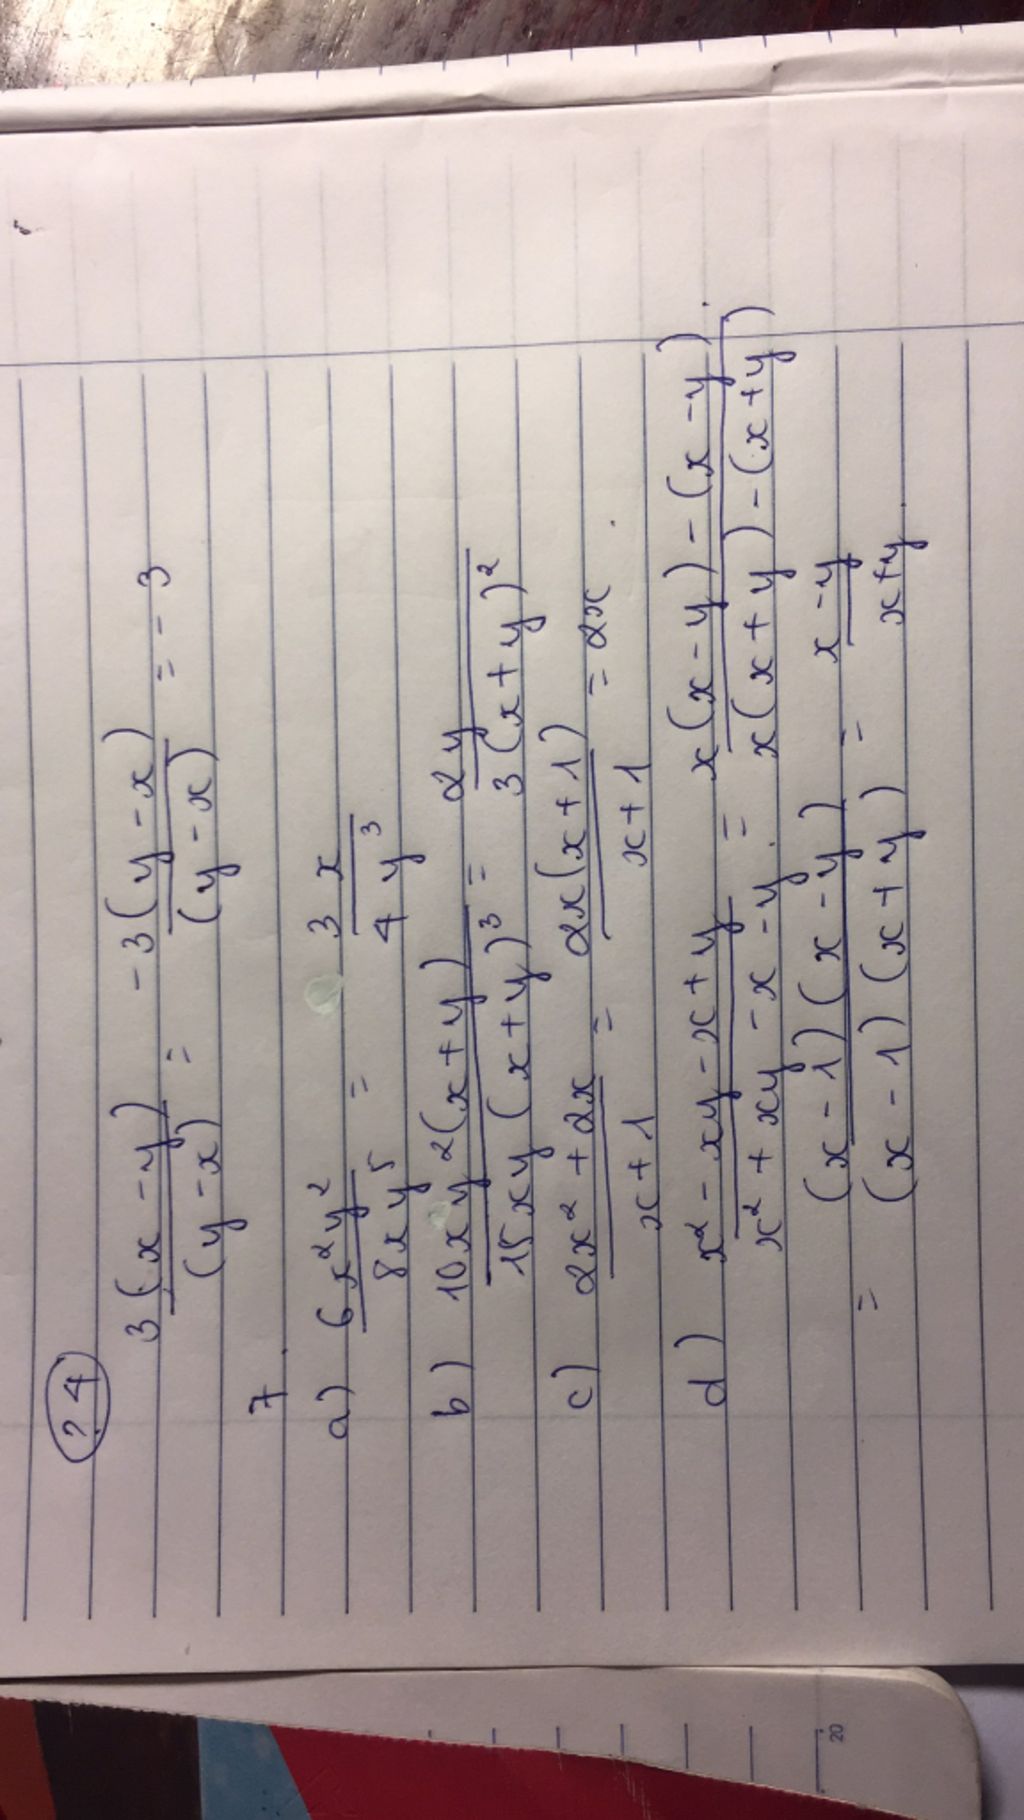 ?4
3(x-y)/(y-x) = -3(y-x)/(y-x) = -3
7
a) 6x²y²/8xy⁵ = 3x/4y³
b) 10xy²(x+y)/15xy(x+y)³ = 2y/3(x+y)²
c) 2x²+2x/x+1 = 2x(x+1)/x+1 = 2x
d) x²-xy-x+y/x²+xy-x-y = x(x-y)-(x-y)/x(x+y)-(x+y)
= (x-1)(x-y)/(x-1)(x+y) = x-y/x+y
20